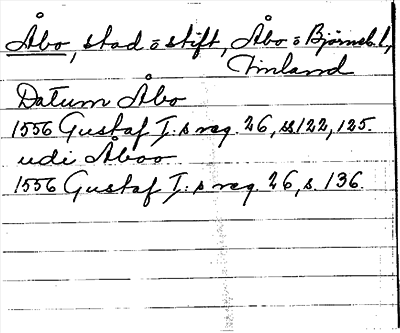 Åbo, stad o stift, Åbo o Björneb. l,
Finland
Datum Åbo
1556 Gustaf I:s reg. 26, ss 122, 125.
udi Åboo
1556 Gustaf I:s reg. 26, s. 136.